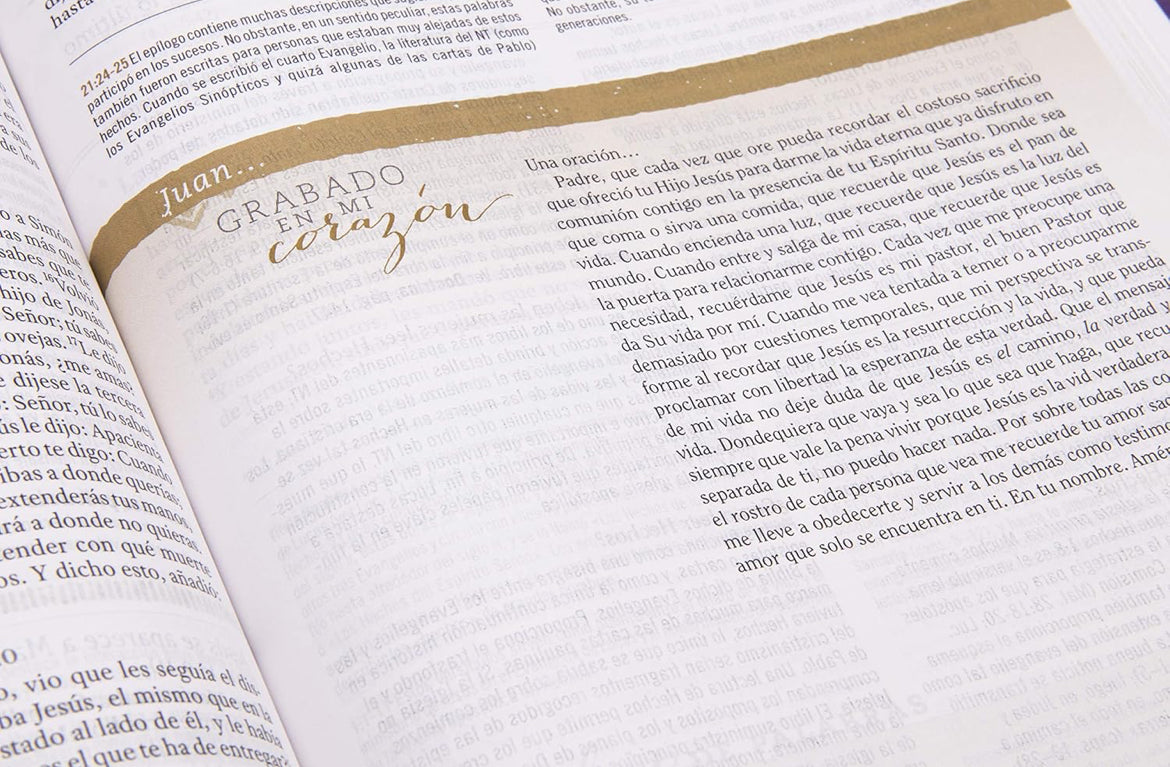 hasta
o a Simón
nas más que
sabes que te
eros. ¹⁶Volvió
hijo de Jonás,
Señor; tú sabes
ovejas. ¹⁷Le dijo
onás, ¿me amas?
e dijese la tercera
: Señor, tú lo sabes
ús le dijo: Apacienta
erto te digo: Cuando
ibas a donde querías;
extenderás tus manos,
ará a donde no quieras.
tender con qué muerte
os. Y dicho esto, añadió:
o, vio que les seguía el dis-
ba Jesús, el mismo que en la
stado al lado de él, y le había
es el que te ha de entregar?
21:24-25 El epílogo contiene muchas descripciones que
participó en los sucesos. No obstante, en un sentido peculiar, estas palabras
también fueron escritas para personas que estaban muy alejadas de estos
hechos. Cuando se escribió el cuarto Evangelio, la literatura del NT (como
los Evangelios Sinópticos y quizá algunas de las cartas de Pablo)
No obstante, su
generaciones.
Juan...
GRABADO
EN MI
corazón
Una oración...
Padre, que cada vez que ore pueda recordar el costoso sacrificio
que ofreció tu Hijo Jesús para darme la vida eterna que ya disfruto en
comunión contigo en la presencia de tu Espíritu Santo. Donde sea
que coma o sirva una comida, que recuerde que Jesús es el pan de
vida. Cuando encienda una luz, que recuerde que Jesús es la luz del
mundo. Cuando entre y salga de mi casa, que recuerde que Jesús es
la puerta para relacionarme contigo. Cada vez que me preocupe una
necesidad, recuérdame que Jesús es mi pastor, el buen Pastor que
da Su vida por mí. Cuando me vea tentada a temer o a preocuparme
demasiado por cuestiones temporales, que mi perspectiva se trans-
forme al recordar que Jesús es la resurrección y la vida, y que pueda
proclamar con libertad la esperanza de esta verdad. Que el mensaj
de mi vida no deje duda de que Jesús es el camino, la verdad y
vida. Dondequiera que vaya y sea lo que sea que haga, que recu
siempre que vale la pena vivir porque Jesús es la vid verdadera
separada de ti, no puedo hacer nada. Por sobre todas las co
el rostro de cada persona que vea me recuerde tu amor sac
me lleve a obedecerte y servir a los demás como testimo
amor que solo se encuentra en ti. En tu nombre. Amén